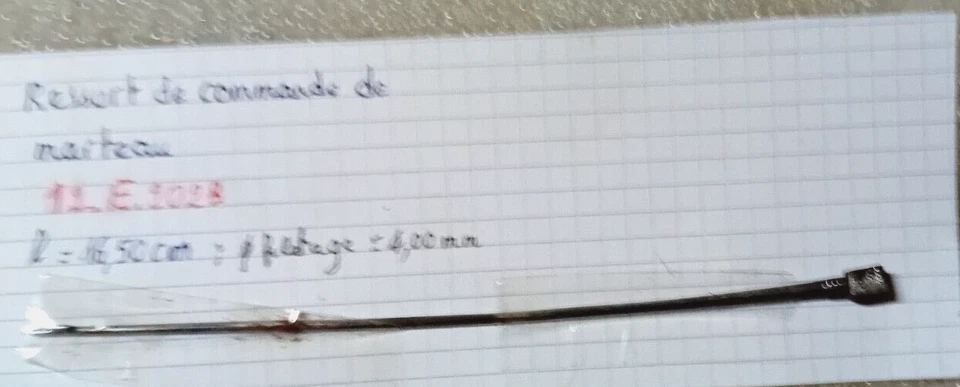 Ressort de commande de
marteau
12.E.2028
l = 16,50 cm ; filetage = 4,00 mm